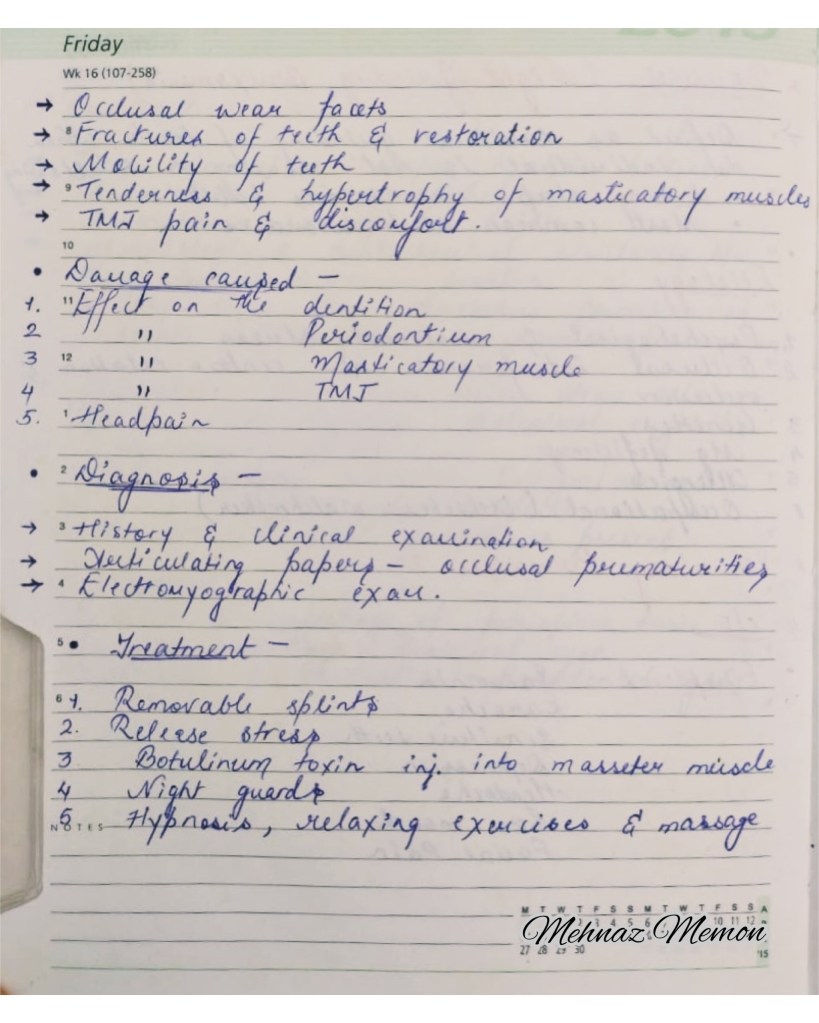 Friday
Wk 16 (107-258)
→ Occlusal wear facets
→ 8 Fractures of teeth & restoration
→ Mobility of teeth
→ 9 Tenderness & hypertrophy of masticatory muscles
→ TMJ pain & discomfort.
10
• Damage caused —
1. 11 Effect on the dentition
2 " Periodontium
3 12 " Masticatory muscle
4 " TMJ
5. 1 Headpain
• 2 Diagnosis —
→ 3 History & clinical examination
→ Articulating papers - occlusal prematurities
→ 4 Electromyographic exam.
5 • Treatment —
6 1. Removable splints
2. Release stress
3 Botulinum toxin inj. into masseter muscle
4 Night guards
5 Hypnosis, relaxing exercises & massage
NOTES
M T W T F S S M T W T F S S A
2 3 4 5 6 10 11 12
Mehnaz Memon
27 28 29 30 '15